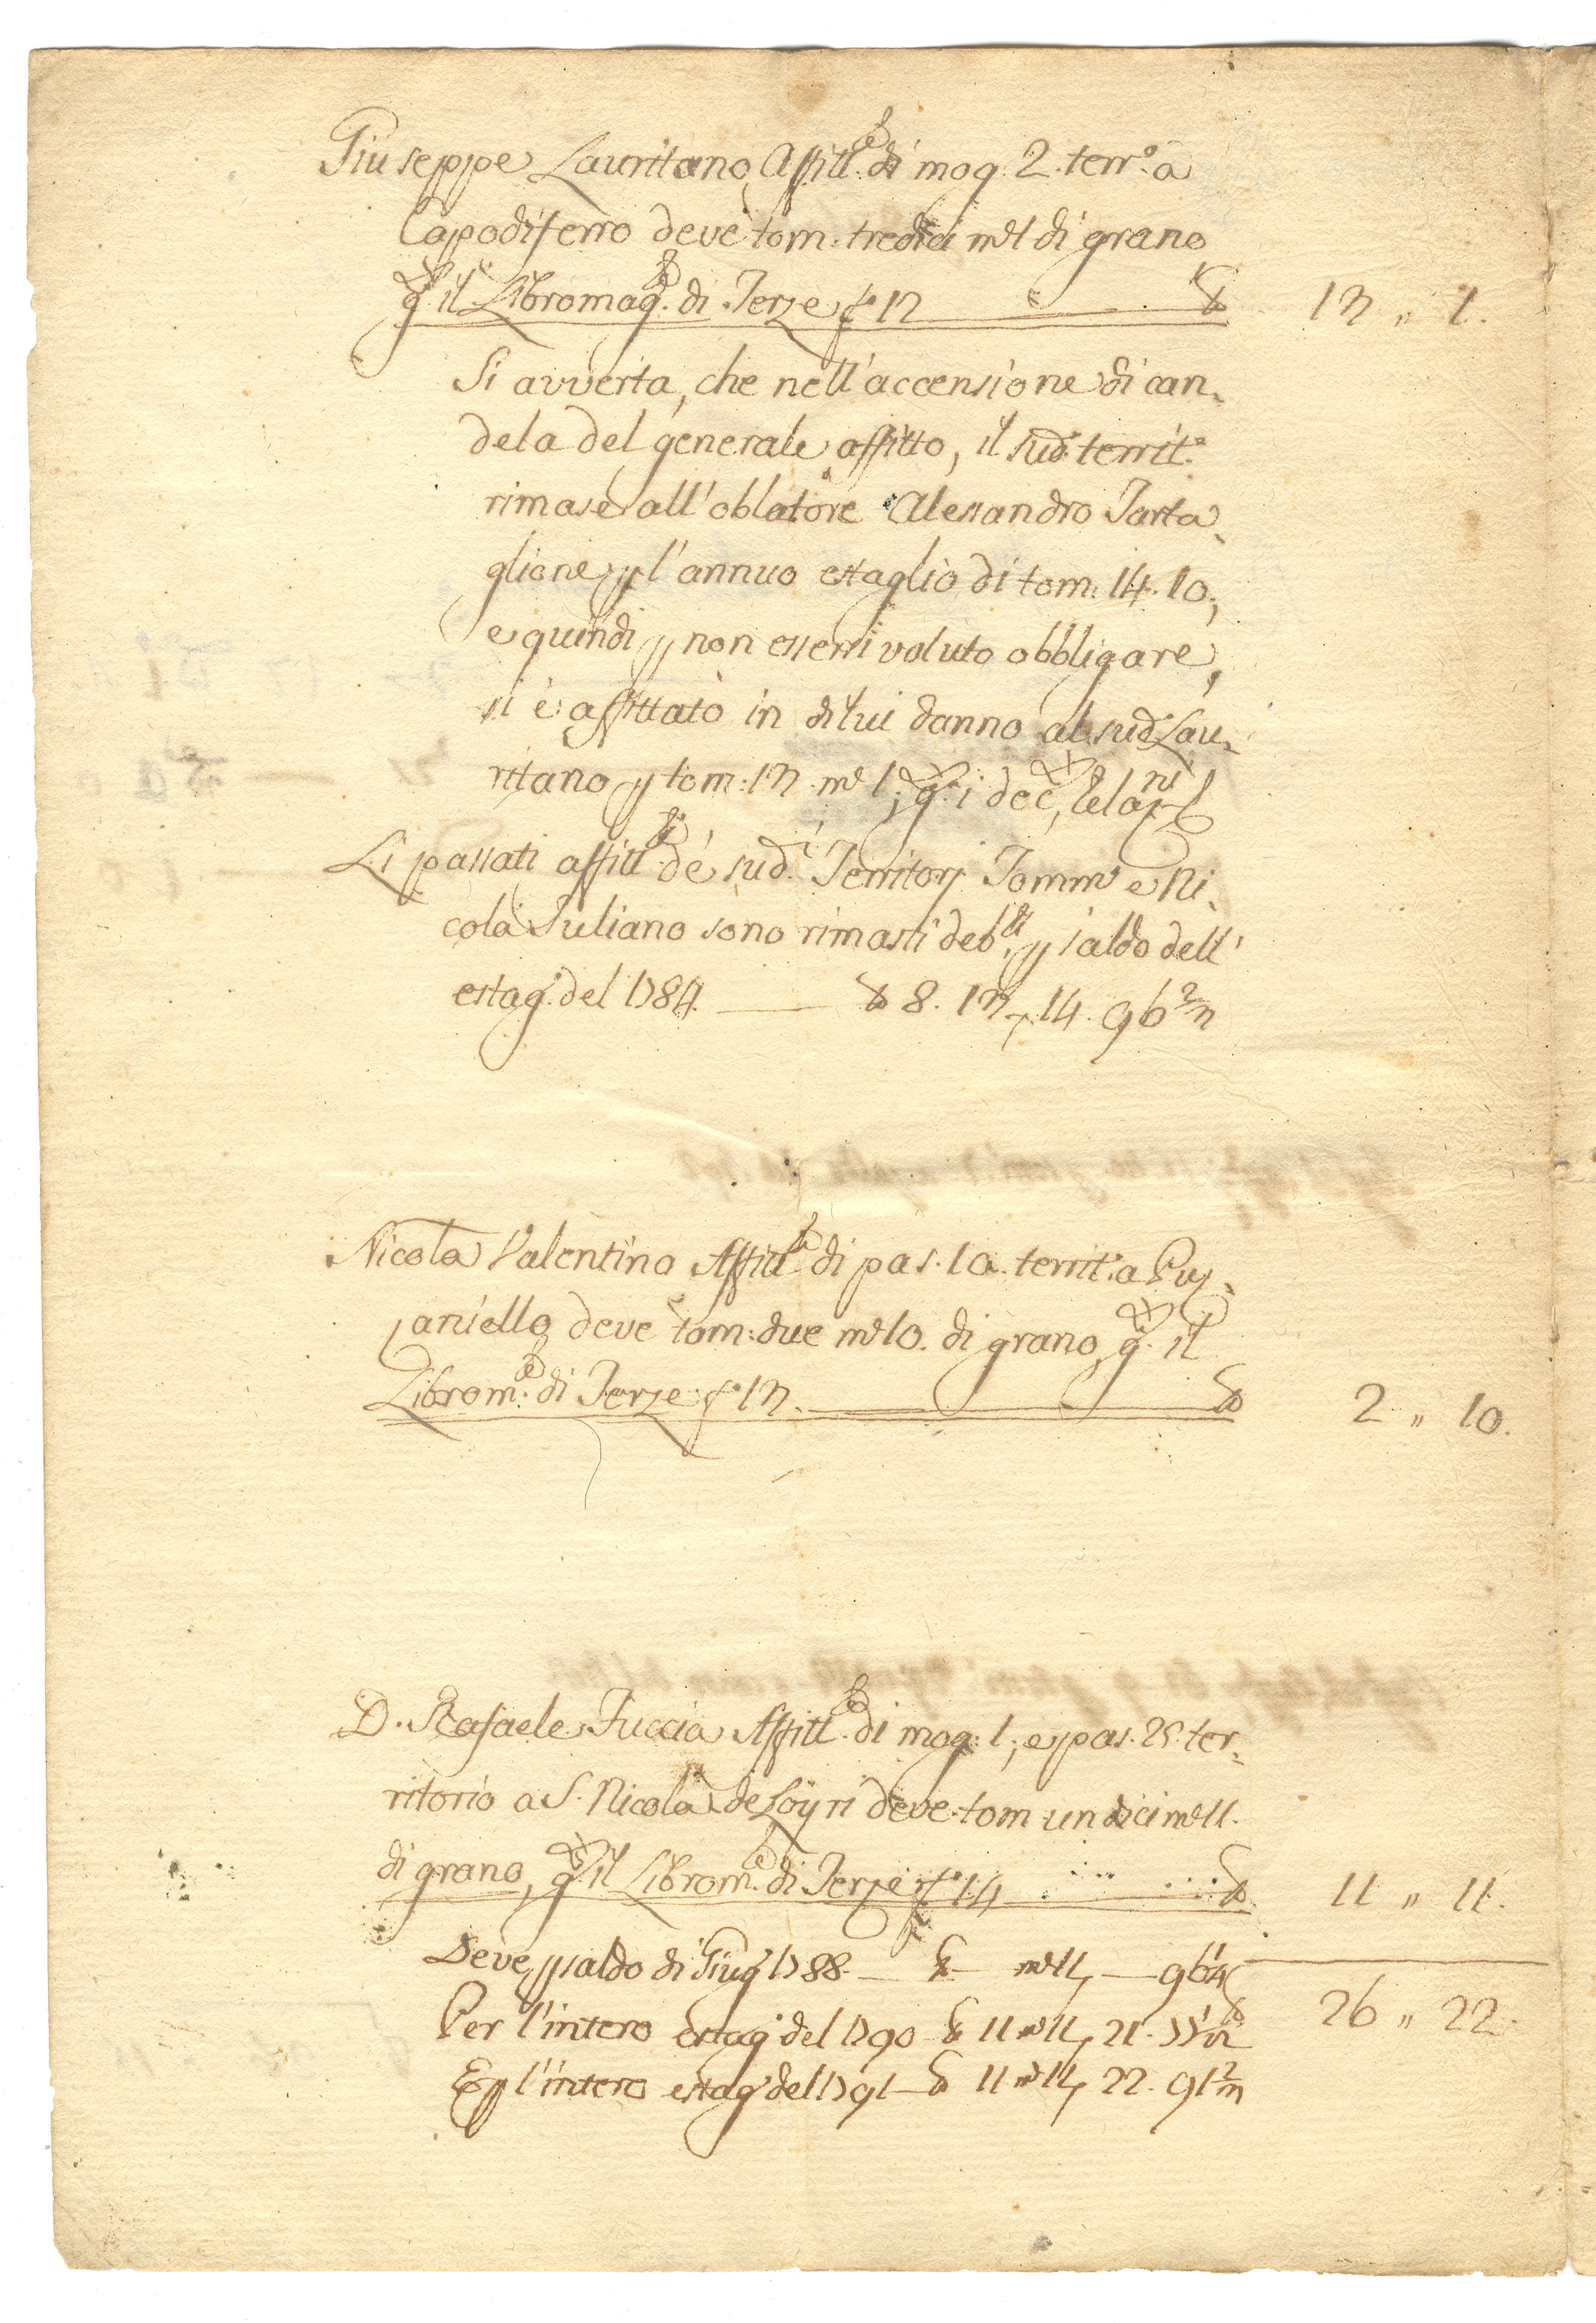 Giuseppe Lauritano Affitt.re di mog. 2. terr.o a
Capodiferro deve tom: tredici m.e 1 di grano
q. il Libromag.e di Terze f.o 13 13 " 1.
Si avverta, che nell'accensione di can-
dela del generale affitto, il sud.o territ.o
rimase all'oblatore Alessandro Tarta-
glione p l'annuo estaglio di tom: 14. 10;
e quindi p non essersi voluto obbligare,
si è affittato in di lui danno al sud.o Lau-
ritano p tom: 13. m.e 1;
Li passati affitt.ri de' sud.i Territorj Tomm.o e Ni-
cola Juliano sono rimasti deb.ri p saldo dell'
estag.o del 1784. 8. 13 14. 96 2/3
Nicola Valentino Affitt.re di pas. 10. territ.o a Puz-
zaniello deve tom: due m.e 10. di grano q. il
Librom.e di Terze f.o 13. 2 " 10.
D. Rafaele Fuccia Affitt.re di mog: 1; e pas. 25. ter-
ritorio a S. Nicola de Loyri deve tom undici m.e 11.
di grano, q. il Librom.e di Terze f.o 14 11 " 11.
Deve p saldo di Giug.o 1788. m.e 11
26 " 22.
Per l'intero estag.o del 1790 11 m.e 11, 21.
E p l'intero estag.o del 1791 11 m.e 11, 22. 91 2/3